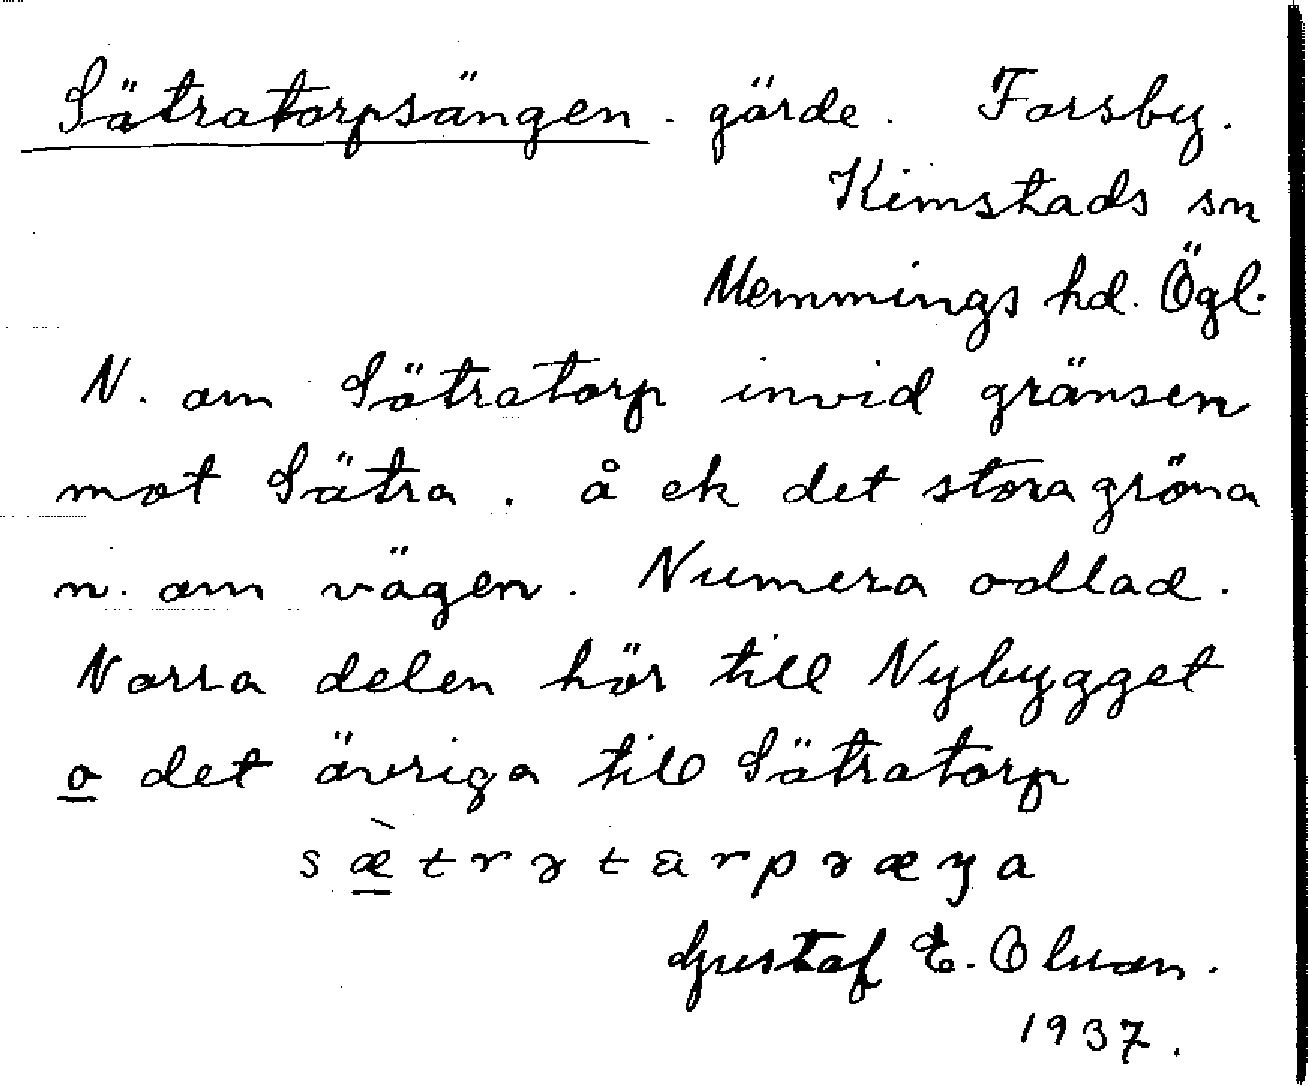 Sätratorpsängen. gärde. Forsby.
Kimstads sn
Memmings hd. Ögl.
N. om Sätratorp invid gränsen
mot Sätra. å ek det stora gröna
n. om vägen. Numera odlad.
Norra delen hör till Nybygget
o det övriga till Sätratorp
Gustaf E. Olson.
1937.